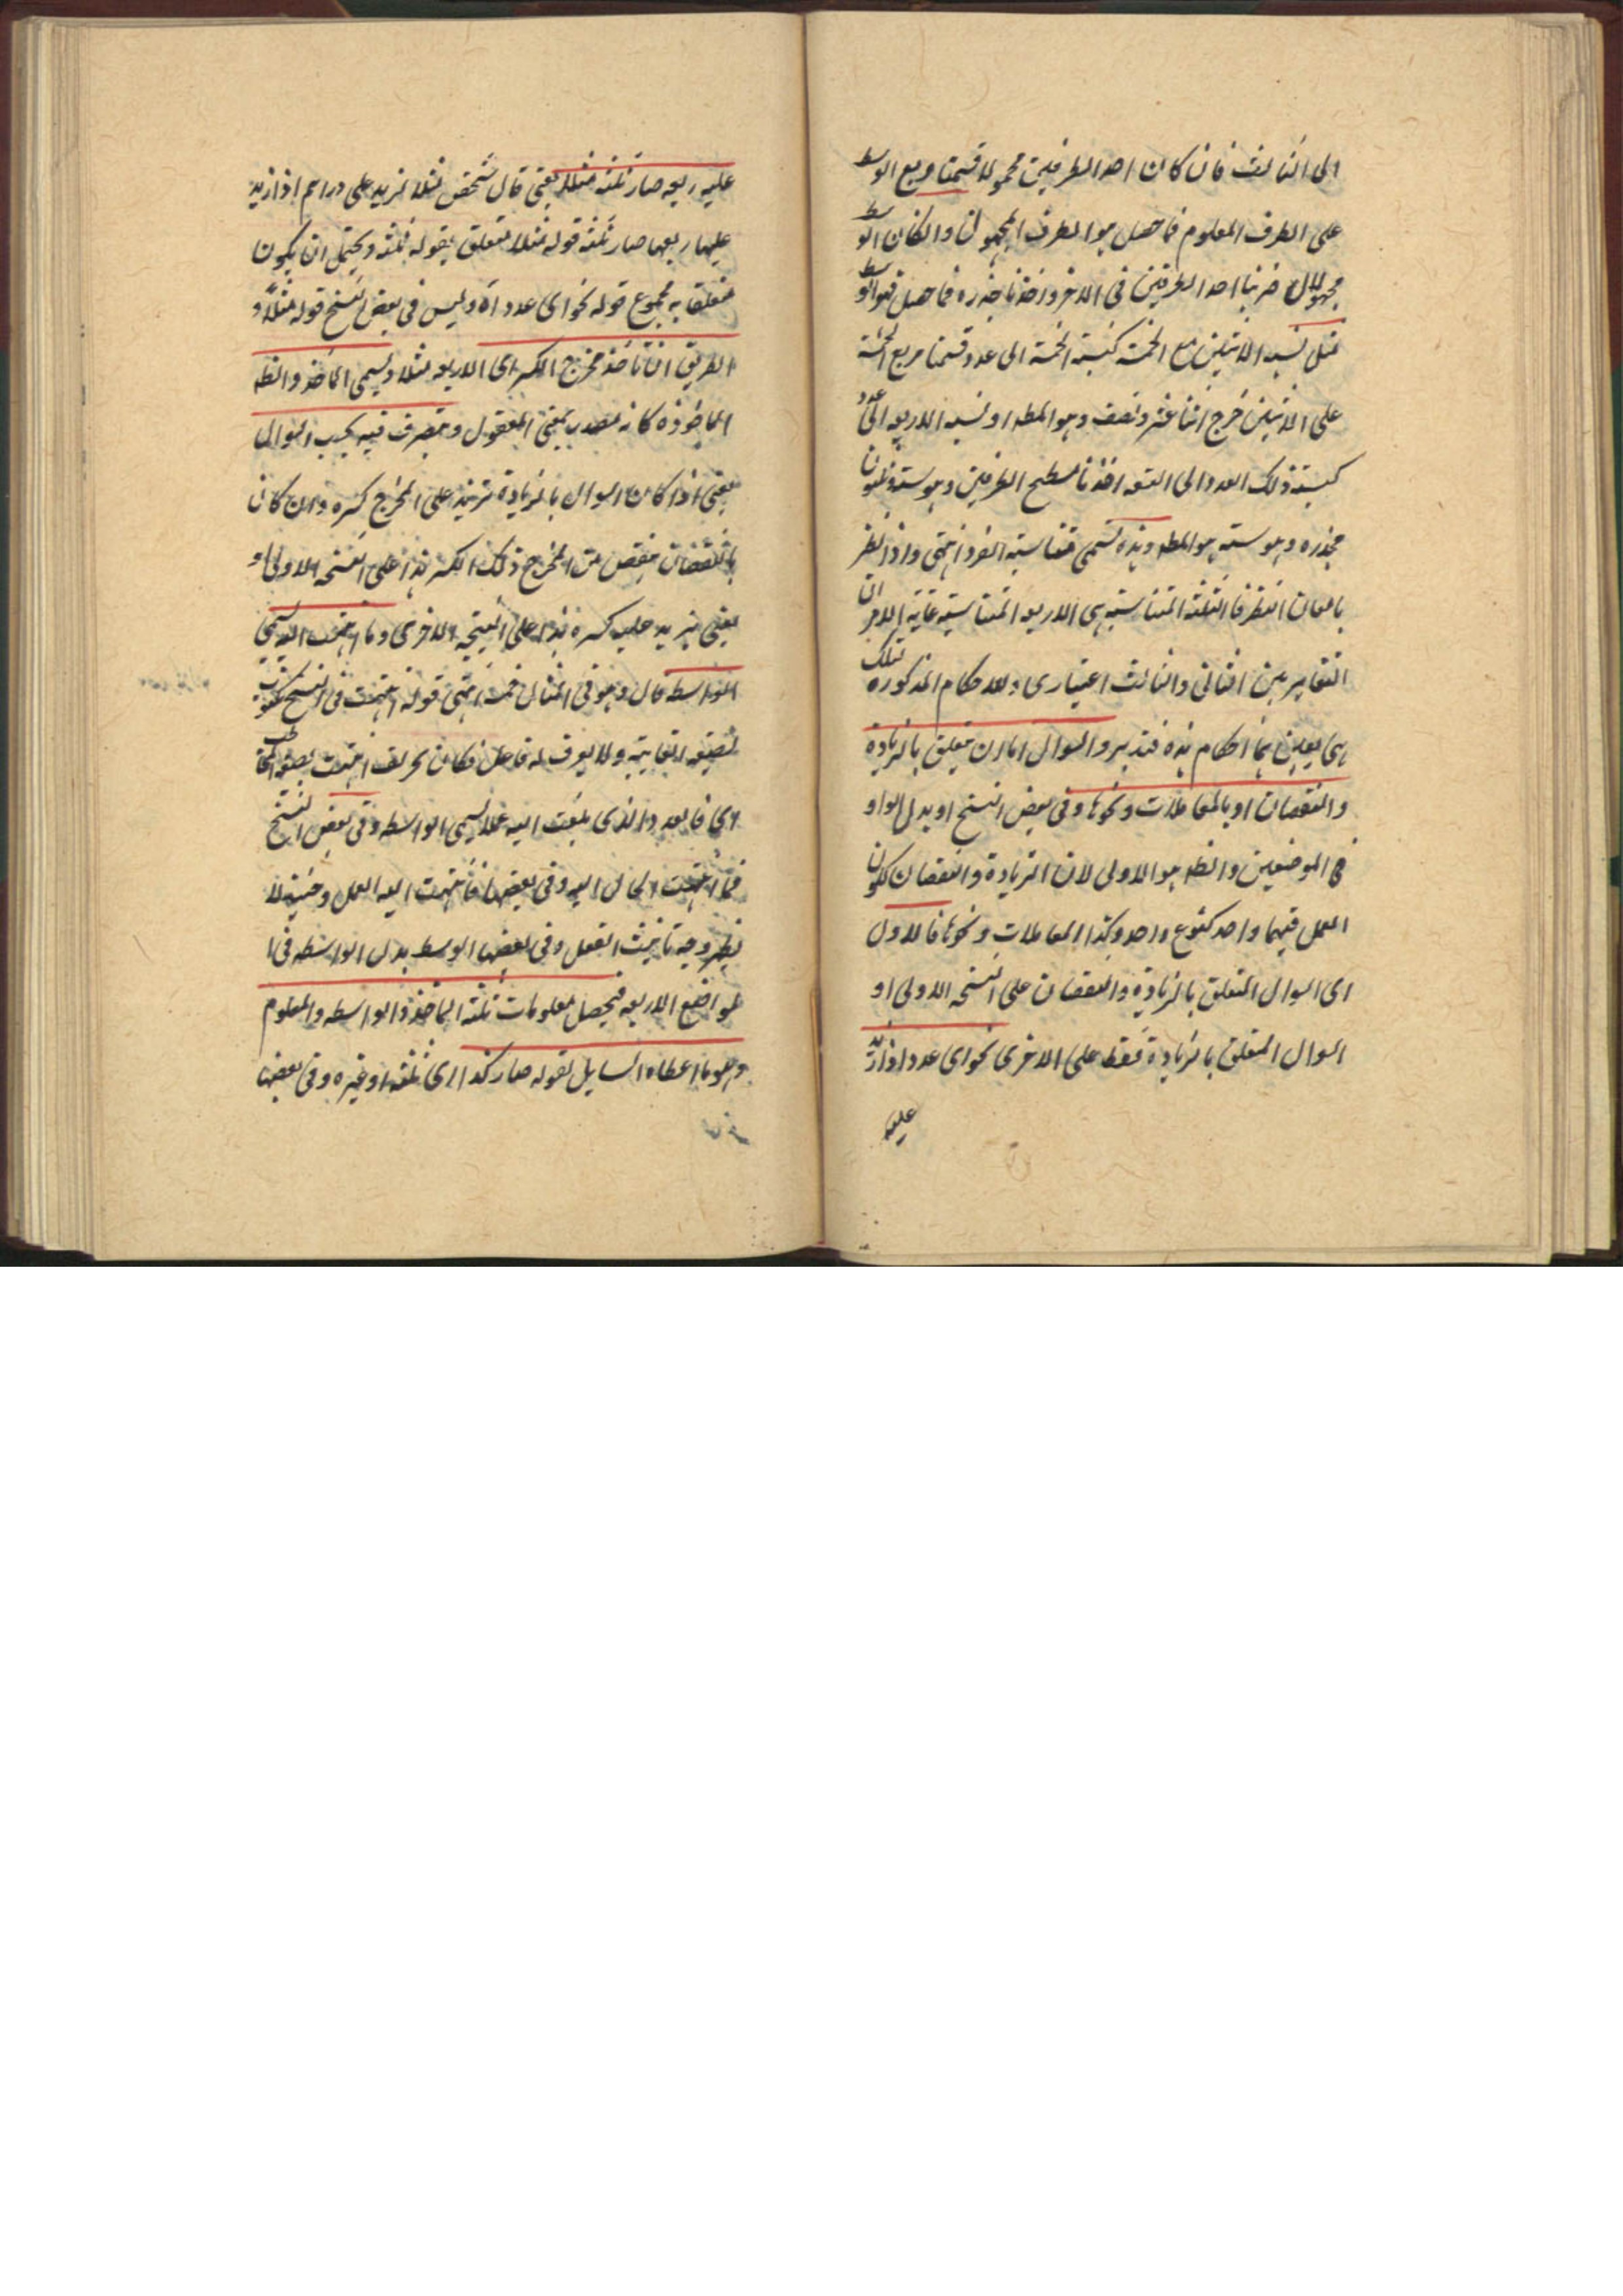 الى الثالث فان كان احد الطرفين مجهولا قسمنا مربع الوسط
على الطرف المعلوم فما حصل هو الطرف المجهول وان كان الوسط
مجهولا ضربنا احد الطرفين فى الاخر واخذنا جذره فما حصل فهو الوسط
مثل نسبة الاثنين مع الخمسة كنسبة الخمسة الى عدد قسمنا مربع الخمسة
على الاثنين خرج اثنا عشر ونصف وهو المط او نسبة الاربعة الى عدد
كنسبة ذلك العدد الى التسعة اخذنا مسطح الطرفين وهو ستة وثلثون
فجذره وهو ستة هو المط وهذه تسمى متناسبة الفرد انتهى واذا نظر
بامعان النظر فالثلثة المتناسبة هى الاربعة المتناسبة غاية الامر ان
التغاير بين الثانى والثالث اعتبارى والاحكام المذكورة تلك
هى بعينها احكام هذه فتدبر والسوال اما ان يتعلق بالزيادة
والنقصان او بالمعاملات ونحوها وفى بعض النسخ او بدل الواو
فى الموضعين والظ هو الاولى لان الزيادة والنقصان لكون
العمل فيهما واحد كنوع واحد وكذا المعاملات ونحوها فالاول
اى السوال المتعلق بالزيادة والنقصان على النسخة الاولى او
السوال المتعلق بالزيادة فقط على الاخرى نحو اى عدد اذا زيد
عليه
عليه ربعه صار ثلثة مثلا يعنى قال شخص مثلا لزيد على دراهم اذا زيد
عليها ربعها صار ثلثة قوله مثلا متعلق بقوله ثلثة ويحتمل ان يكون
متعلقا بمجموع قوله نحو اى عدد اه وليس فى بعض النسخ قوله مثلا و
الطريق ان تاخذ مخرج الكسر اى الاربعة مثلا ويسمى الماخذ والظ
الماخوذ كانه مصدر بمعنى المفعول وتتصرف فيه بحسب السوال
يعنى اذا كان السوال بالزيادة تزيد على المخرج كسره وان كان
بالنقصان تنقص من المخرج ذلك الكسر هذا على النسخة الاولى او
يعنى يزيد عليه كسره هذا على النسخة الاخرى وما انتهت اليه يسمى
الواسطة قال وهو فى المثال خمسة انتهى قوله انتهت فى النسخ مكتوب
بصيغة الغايبة ولا يعرف له فاعل فكان تحريف انتهيت بصيغة الخطاب
اى فالعدد الذى بلغت اليه عملا يسمى الواسطة وفى بعض النسخ
فما انتهت الحال اليه وفى بعضها فما انتهت اليه العمل وحينئذ لا
يظهر وجه تانيث الفعل وفى بعضها الوسط بدل الواسطة فى ا
لمواضع الاربعة فيحصل معلومات ثلثة الماخذ والواسطة والمعلوم
وهو ما اعطاه السايل بقوله صار كذا اى ثلثة او غيره وفى بعضها